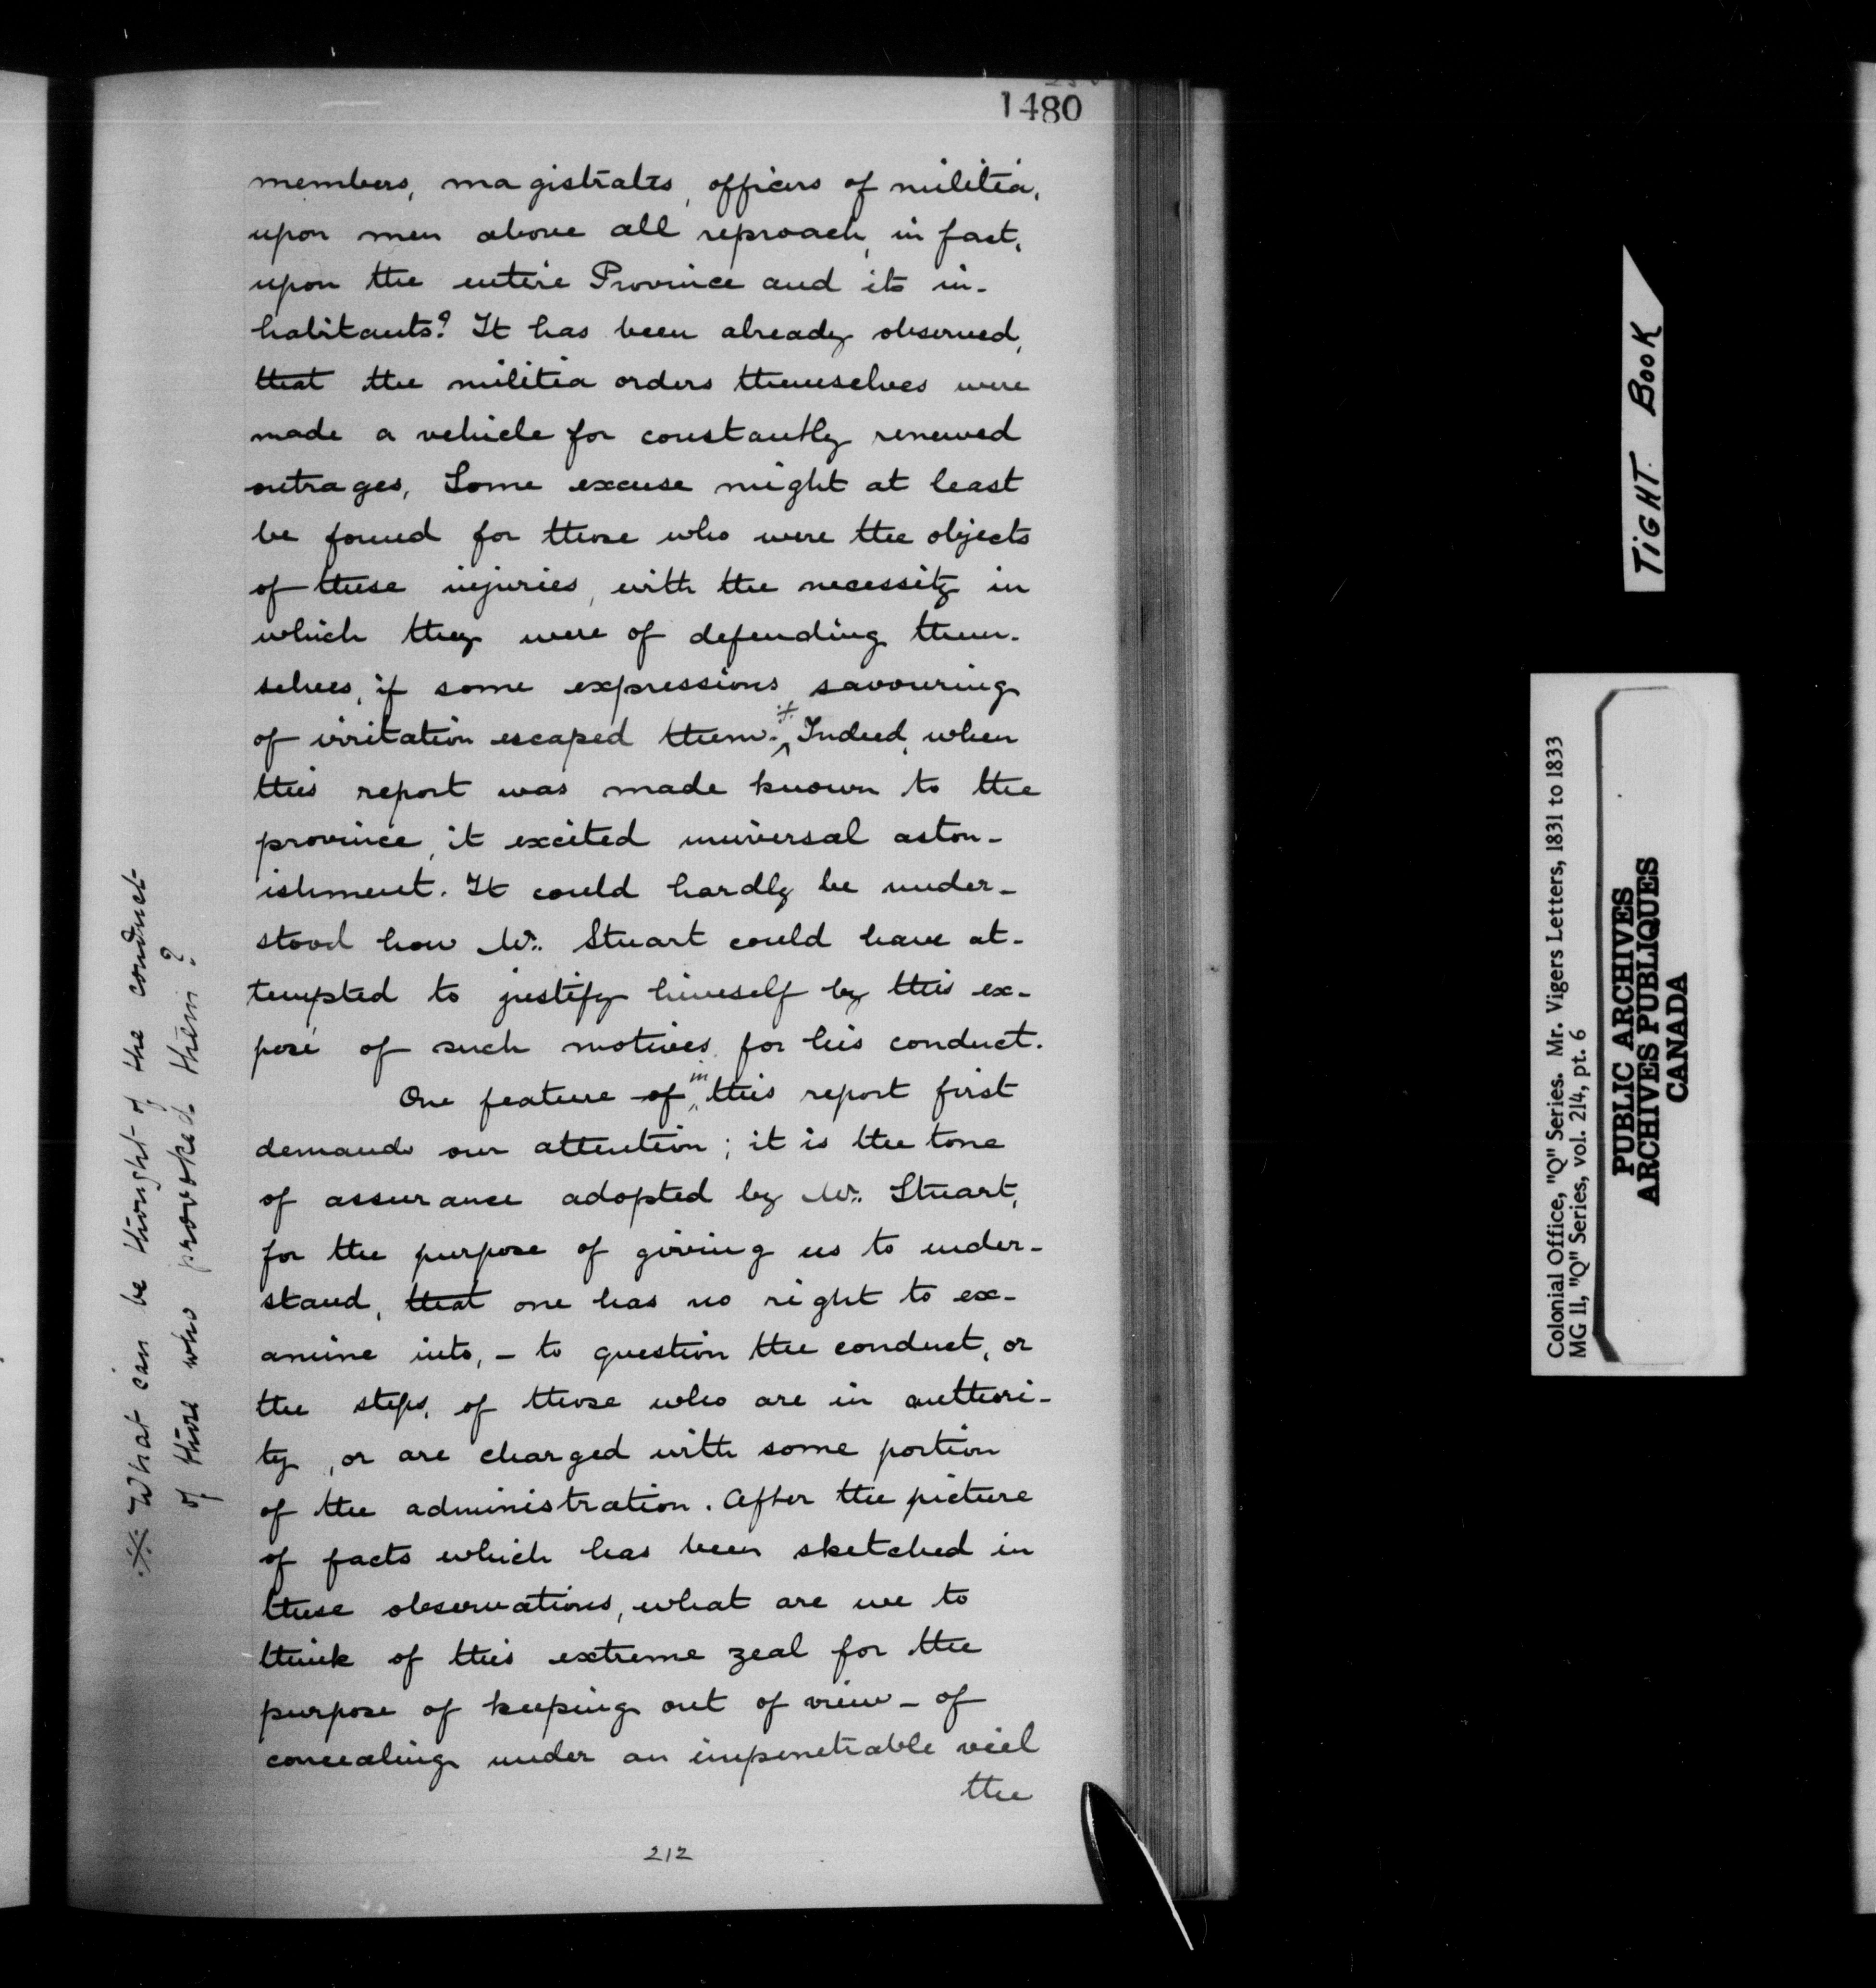 1480
members, magistrates, officers of militia,
upon men above all reproach, in fact,
upon the entire Province and its in-
habitants? It has been already observed,
that the militia orders themselves were
made a vehicle for constantly renewed
outrages, Some excuse might at least
be found for those who were the objects
of these injuries, with the necessity in
which they were of defending them-
selves, if some expressions savouring
of irritation escaped them. ※ Indeed, when
this report was made known to the
province, it excited universal aston-
ishment. It could hardly be under-
stood how Mr. Stuart could have at-
tempted to justify himself by this ex-
posé of such motives for his conduct.
One feature of in this report first
demands our attention; it is the tone
of assurance adopted by Mr. Stuart,
for the purpose of giving us to under-
stand, that one has no right to ex-
amine into, - to question the conduct, or
the steps, of those who are in authori-
ty, or are charged with some portion
of the administration. After the picture
of facts which has been sketched in
these observations, what are we to
think of this extreme zeal for the
purpose of keeping out of view - of
concealing under an impenetrable veil
the
212
※ What can be thought of the conduct
of those who provoked them?
TIGHT BOOK
Colonial Office, "Q" Series. Mr. Vigers Letters, 1831 to 1833
MG 11, "Q" Series, vol. 214, pt. 6
PUBLIC ARCHIVES
ARCHIVES PUBLIQUES
CANADA